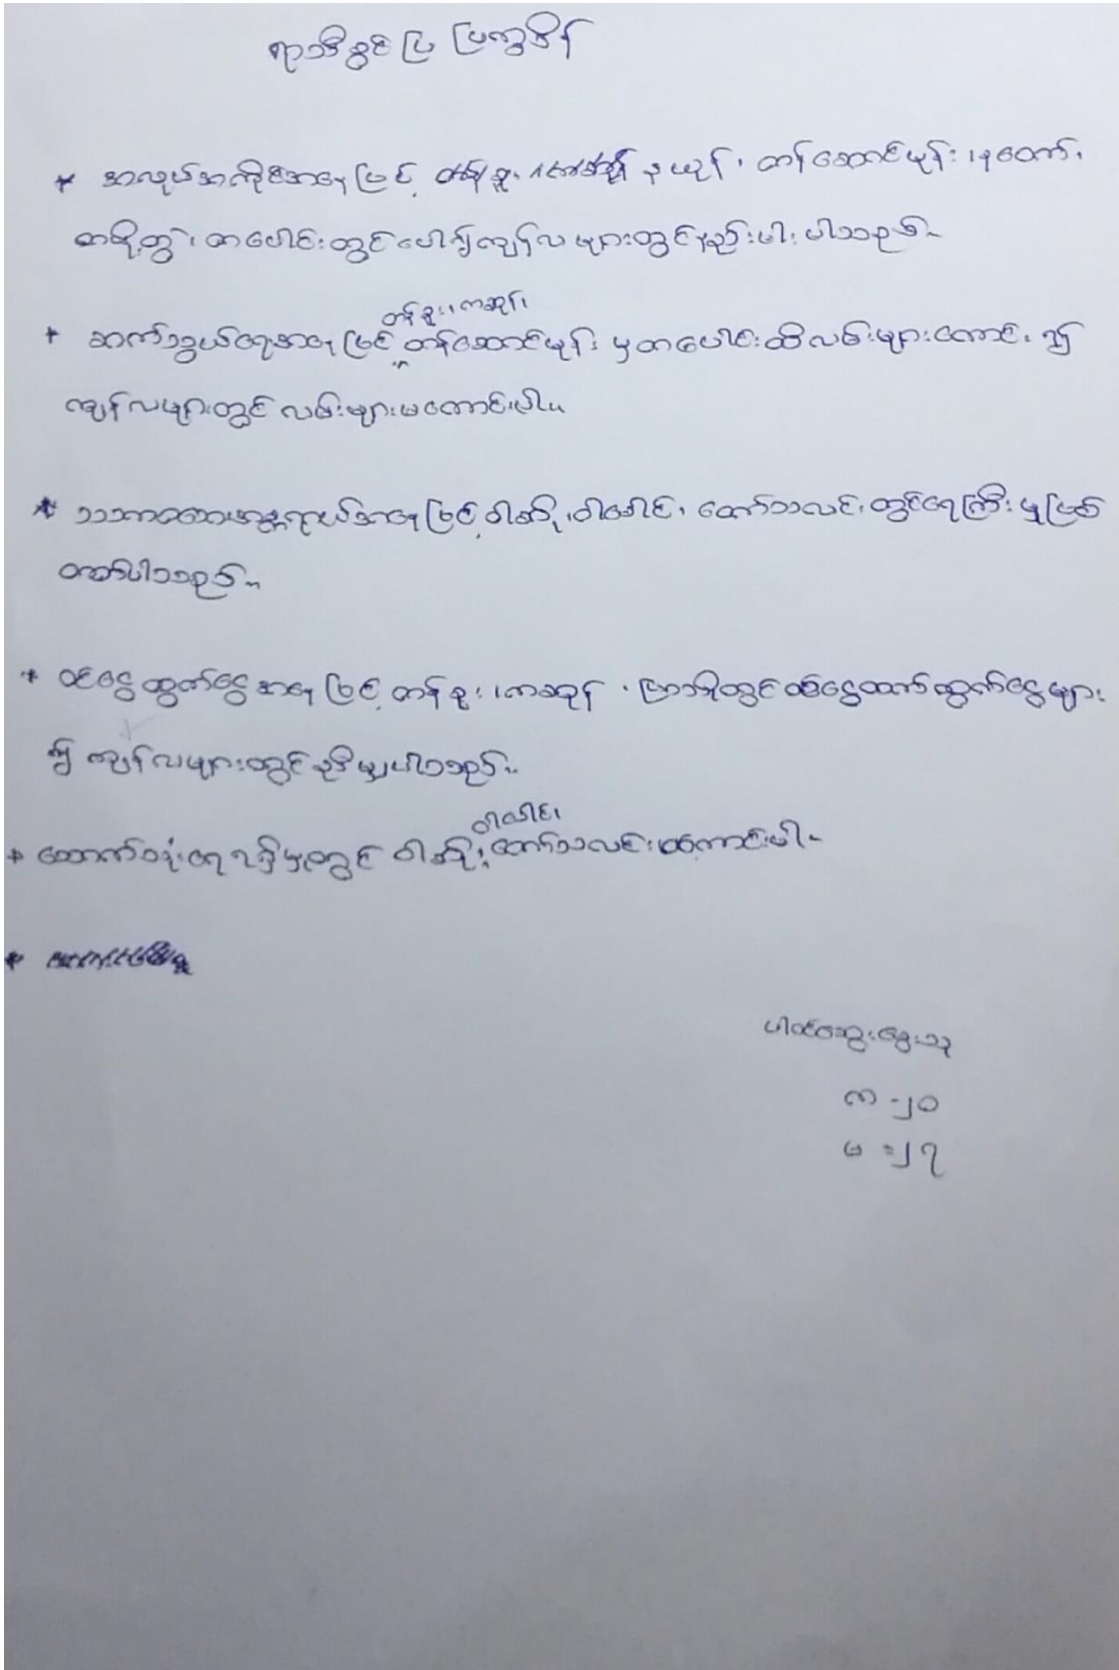 ရာသီခွင်ပြ ပြက္ခဒိန်
* အလုပ်အကိုင်အနေဖြင့် နယုန်၊ တန်ဆောင်မုန်း၊ နတော်၊
တပို့တွဲ၊ တပေါင်းတွင်ပေါ၍ကျန်လများတွင်နည်းပါးပါသည်။
* ဆက်သွယ်ရေးအနေဖြင့် တန်ခူး၊ ကဆုန်၊ တန်ဆောင်မုန်း မှတပေါင်းထိလမ်းများကောင်း၍
ကျန်လများတွင် လမ်းများမကောင်းပါ။
* သဘာဝဘေးအန္တရာယ်အနေဖြင့် ဝါဆို၊ ဝါခေါင်၊ တော်သလင်းတွင်ရေကြီးမှုဖြစ်
တတ်ပါသည်။
* ဝင်ငွေထွက်ငွေအနေဖြင့် တန်ခူး၊ ကဆုန်၊ ပြာသိုတွင်ဝင်ငွေထက်ထွက်ငွေများ
၍ ကျန်လများတွင်ညီမျှပါသည်။
* သောက်သုံးရေရရှိမှုတွင် ဝါဆို၊ ဝါခေါင်၊ တော်သလင်းမကောင်းပါ။
*
ပါဝင်ဆွေးနွေးသူ
က - ၂၀
မ = ၂၇